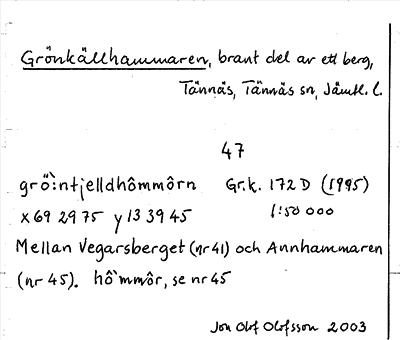 Grönkällhammaren, brant del av ett berg,
Tännäs, Tännäs sn, Jämtl. l.
47
grö̀:ntjelldhômmôrn Gr.k. 172D (1995)
x 69 29 75 y 13 39 45 1:50 000
Mellan Vegarsberget (nr 41) och Annhammaren
(nr 45). hô`mmôr, se nr 45
Jon Olof Olofsson 2003